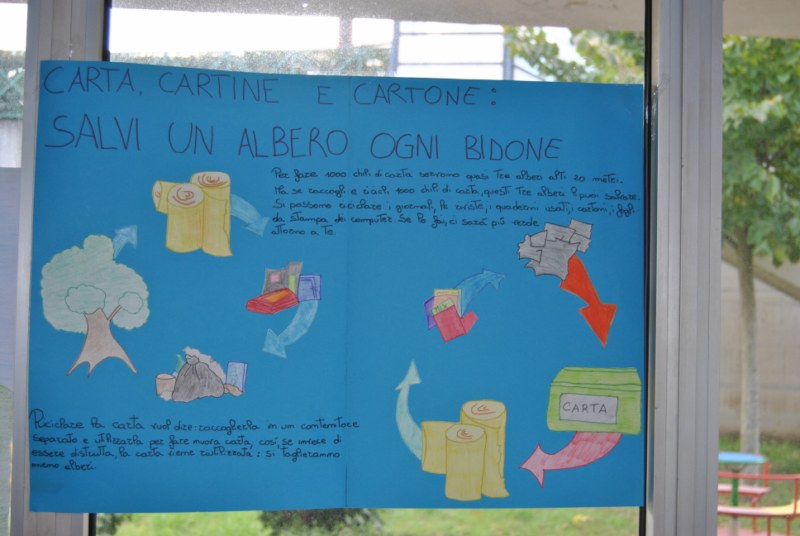 CARTA, CARTINE E CARTONE:
SALVI UN ALBERO OGNI BIDONE
Per fare 1000 chili di carta servono quasi tre alberi alti 20 metri.
Ma se raccogli e ricicli 1000 chili di carta, questi tre alberi li puoi salvare.
Si possono riciclare i giornali, le riviste, i quaderni usati, i cartoni, i fogli
da stampa dei computer. Se lo fai, ci sarà più verde
attorno a te.
CARTA
Riciclare la carta vuol dire: raccoglierla in un contenitore
separato e utilizzarla per fare nuova carta, così, se invece di
essere distrutta, la carta viene riutilizzata: si taglieranno
meno alberi.